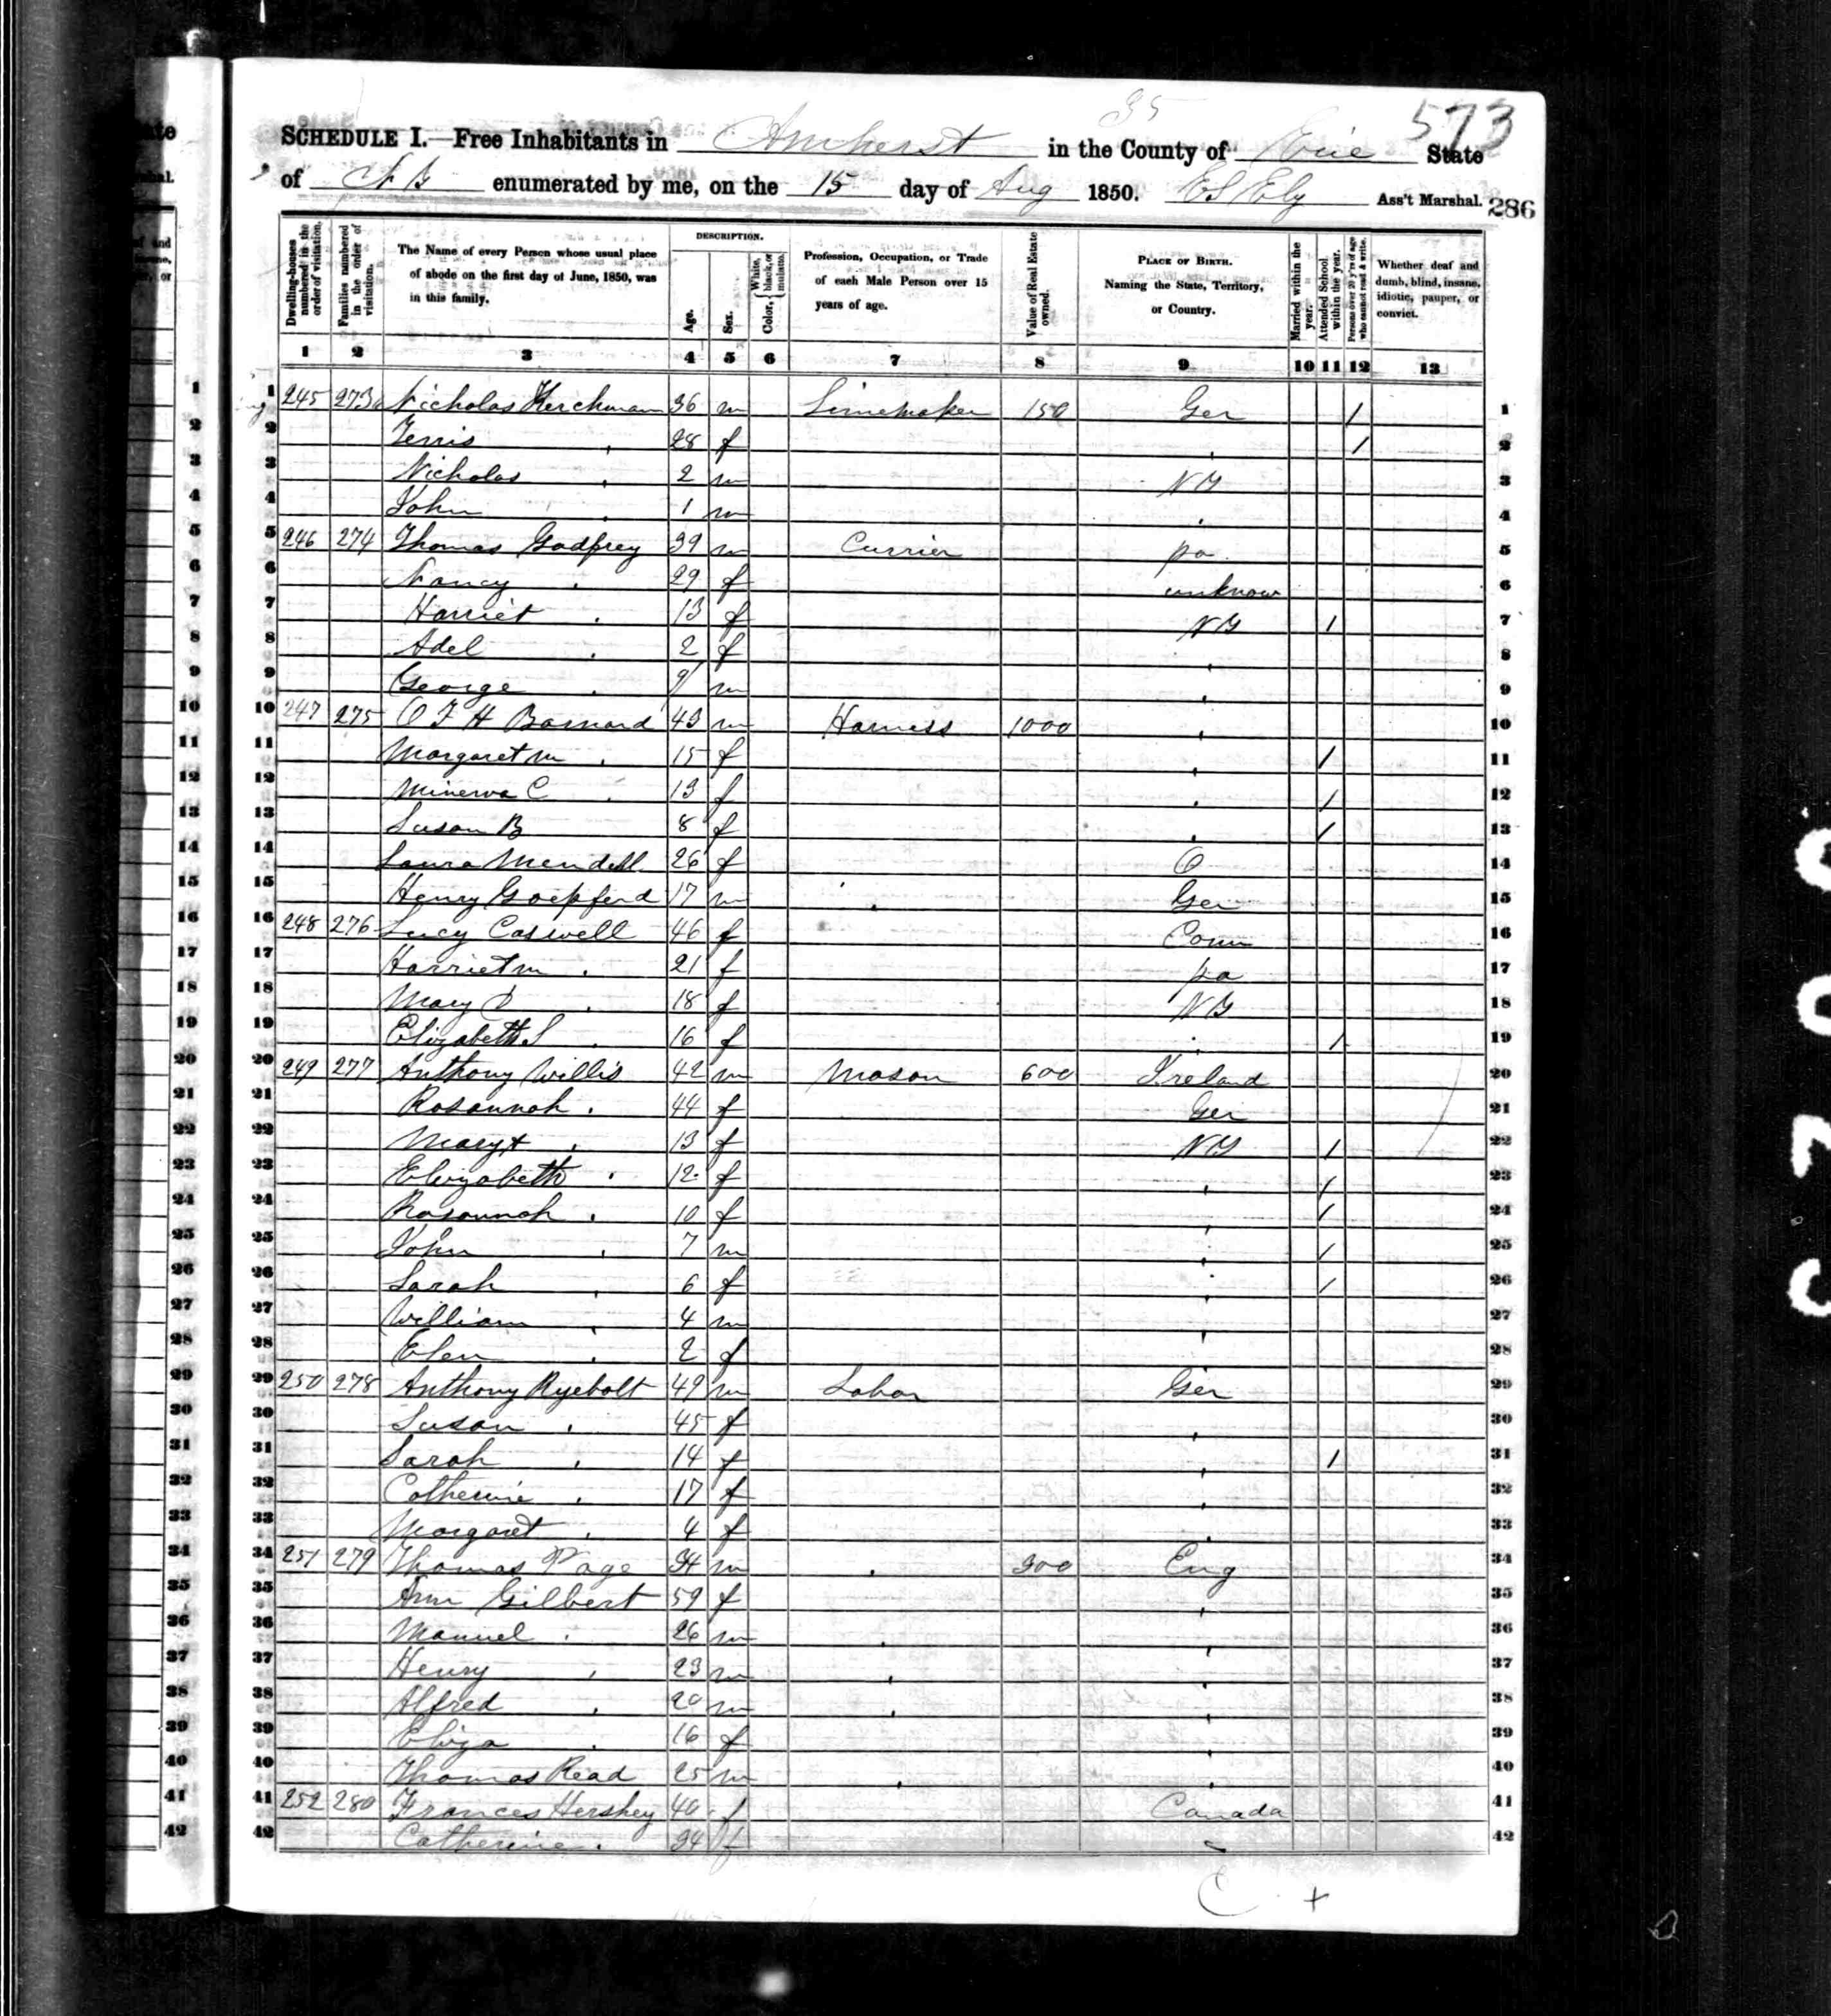 35
573
SCHEDULE I.—Free Inhabitants in Amherst in the County of Erie State
of NY enumerated by me, on the 15 day of Aug 1850. E S Ely Ass't Marshal. 286
Dwelling-houses numbered in the order of visitation.
Families numbered in the order of visitation.
The Name of every Person whose usual place of abode on the first day of June, 1850, was in this family.
DESCRIPTION.
Age.
Sex.
Color, { White, black, or mulatto.
Profession, Occupation, or Trade of each Male Person over 15 years of age.
Value of Real Estate owned.
PLACE OF BIRTH. Naming the State, Territory, or Country.
Married within the year.
Attended School within the year.
Persons over 20 y'rs of age who cannot read & write.
Whether deaf and dumb, blind, insane, idiotic, pauper, or convict.
1 2 3 4 5 6 7 8 9 10 11 12 13
1 245 273 Nicholas Kerchman 36 m Limemaker 150 Ger / 1
2 28 f , / 2
3 Nicholas , 2 m NY 3
4 John , 1 m . 4
5 246 274 Thomas Godfrey 39 m Currier pa. 5
6 Nancy . 29 f unknow 6
7 Harriet . 13 f NY 1 7
8 Adel . 2 f , 8
9 George . m , 9
10 247 275 O F H Barnard 43 m Harness 1000 , 10
11 Margaret m . 15 f , / 11
12 Minerva C . 13 f . / 12
13 Susan B 8 f . / 13
14 Laura Mendell 26 f O 14
15 Henry Goepferd 17 m . Ger 15
16 248 276 Lucy Caswell 46 f Conn 16
17 Harriet m . 21 f pa 17
18 Mary D . 18 f NY 18
19 Elizabeth S . 16 f . 1 19
20 249 277 Anthony Willis 42 m Mason 600 Ireland 20
21 Rosannah . 44 f Ger 21
22 Mary , 13 f NY / 22
23 Elizabeth . 12 f , / 23
24 Rosannah . 10 f , / 24
25 John , 7 m , / 25
26 Sarah , 6 f , / 26
27 William , 4 m , 27
28 Elen . 2 f 28
29 250 278 Anthony Ryebolt 49 m Labor Ger 29
30 Susan . 45 f , 30
31 Sarah , 14 f , / 31
32 Catherine , 17 f , 32
33 Margaret , 4 f . 33
34 251 279 Thomas Page 34 m . 300 Eng 34
35 Ann Gilbert 59 f , 35
36 Manuel . 26 m . , 36
37 Henry , 23 m , , 37
38 Alfred , 20 m , , 38
39 Eliza . 16 f , 39
40 Thomas Read 25 m , , 40
41 252 280 Frances Hershey 40 f Canada 41
42 Catherine . 34 f 42